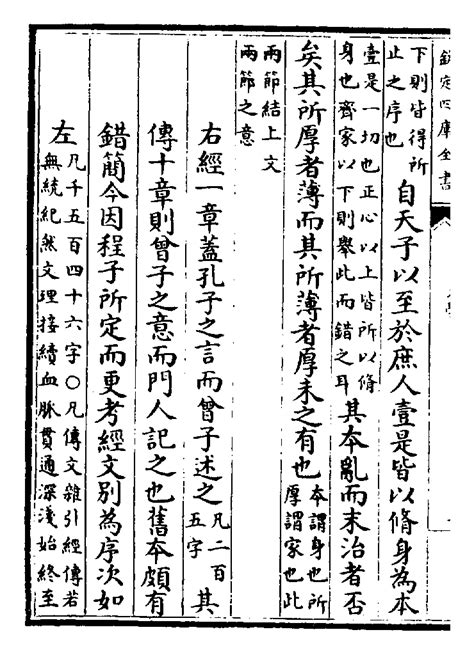 欽定四庫全書
下則皆得所
止之序也
自天子以至於庶人壹是皆以脩身為本
壹是一切也正心以上皆所以脩
身也齊家以下則舉此而錯之耳
其本亂而末治者否
矣其所厚者薄而其所薄者厚未之有也
本謂身也所
厚謂家也此
兩節結上文
兩節之意
右經一章蓋孔子之言而曾子述之
凡二百
五字
其
傳十章則曾子之意而門人記之也舊本頗有
錯簡今因程子所定而更考經文別為序次如
左
凡千五百四十六字○凡傳文雜引經傳若
無統紀然文理接續血脈貫通深淺始終至